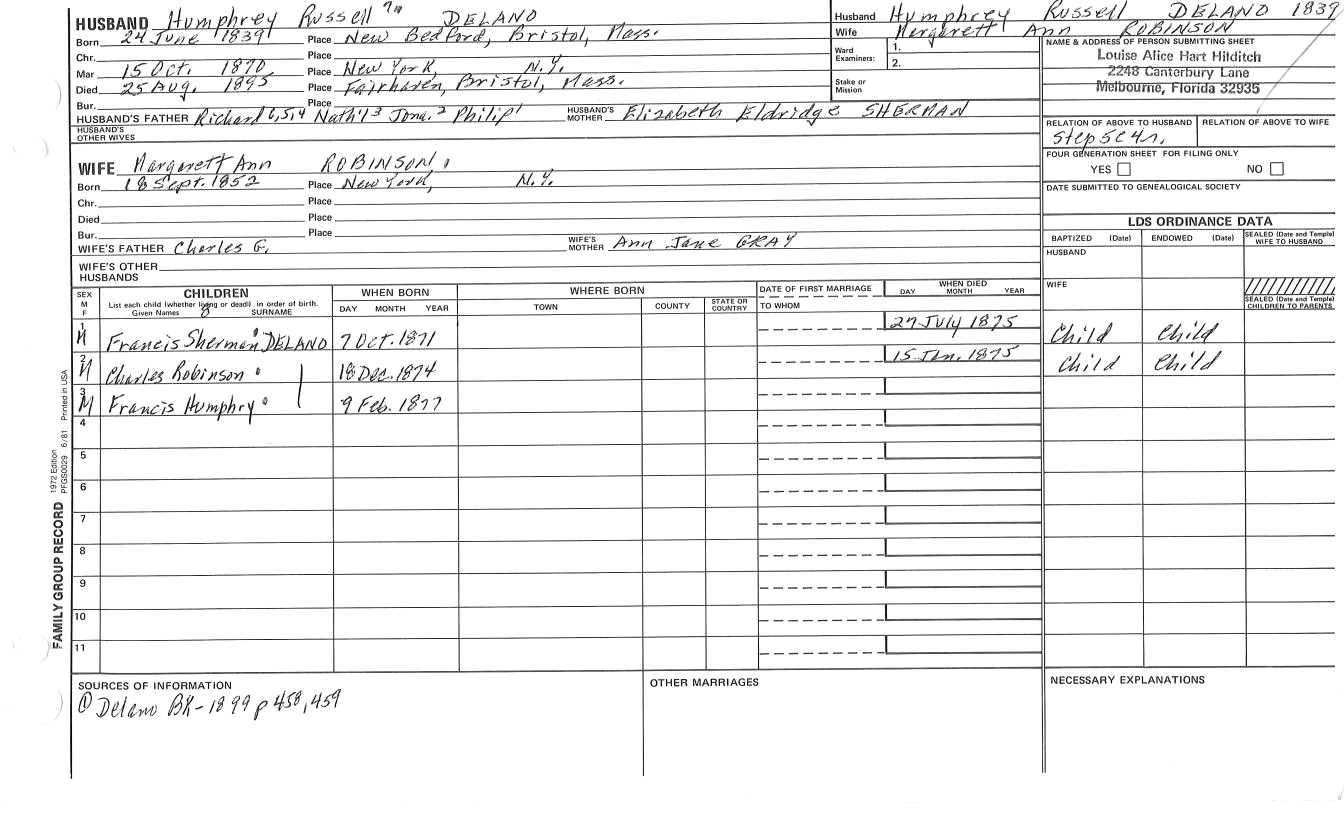 HUSBAND Humphrey Russell 7 DELANO
Born 24 June 1839 Place New Bedford, Bristol, Mass.
Chr. Place
Mar 15 Oct. 1870 Place New York, N.Y.
Died 25 Aug. 1895 Place Fairhaven, Bristol, Mass.
Bur. Place
HUSBAND'S FATHER Richard 6,5,4 Nath'l 3 Jona. 2 Philip 1 HUSBAND'S MOTHER Elizabeth Eldridge SHERMAN
HUSBAND'S OTHER WIVES
WIFE Margarett Ann ROBINSON
Born 18 Sept. 1852 Place New York, N.Y.
Chr. Place
Died Place
Bur. Place
WIFE'S FATHER Charles G. WIFE'S MOTHER Ann Jane GRAY
WIFE'S OTHER HUSBANDS
Husband Humphrey Russell DELANO 1839
Wife Margarett Ann ROBINSON
Ward Examiners: 1.
2.
Stake or Mission
NAME & ADDRESS OF PERSON SUBMITTING SHEET
Louise Alice Hart Hilditch
2248 Canterbury Lane
Melbourne, Florida 32935
RELATION OF ABOVE TO HUSBAND RELATION OF ABOVE TO WIFE
Step 5C4r.
FOUR GENERATION SHEET FOR FILING ONLY
YES NO
DATE SUBMITTED TO GENEALOGICAL SOCIETY
LDS ORDINANCE DATA
BAPTIZED (Date) ENDOWED (Date) SEALED (Date and Temple) WIFE TO HUSBAND
HUSBAND
WIFE
SEALED (Date and Temple) CHILDREN TO PARENTS
SEX M F CHILDREN WHEN BORN WHERE BORN DATE OF FIRST MARRIAGE WHEN DIED
List each child (whether living or dead) in order of birth.
Given Names 8 SURNAME DAY MONTH YEAR TOWN COUNTY STATE OR COUNTRY TO WHOM DAY MONTH YEAR
1 M Francis Sherman DELANO 7 Oct. 1871 27 July 1875 Child Child
2 M Charles Robinson " 18 Dec. 1874 15 Jan. 1875 Child Child
3 M Francis Humphry " 9 Feb. 1877
4
5
6
7
8
9
10
11
SOURCES OF INFORMATION OTHER MARRIAGES NECESSARY EXPLANATIONS
① Delano BK-1899 p 458, 459
FAMILY GROUP RECORD 1972 Edition PFGS0029 6/81 Printed in USA